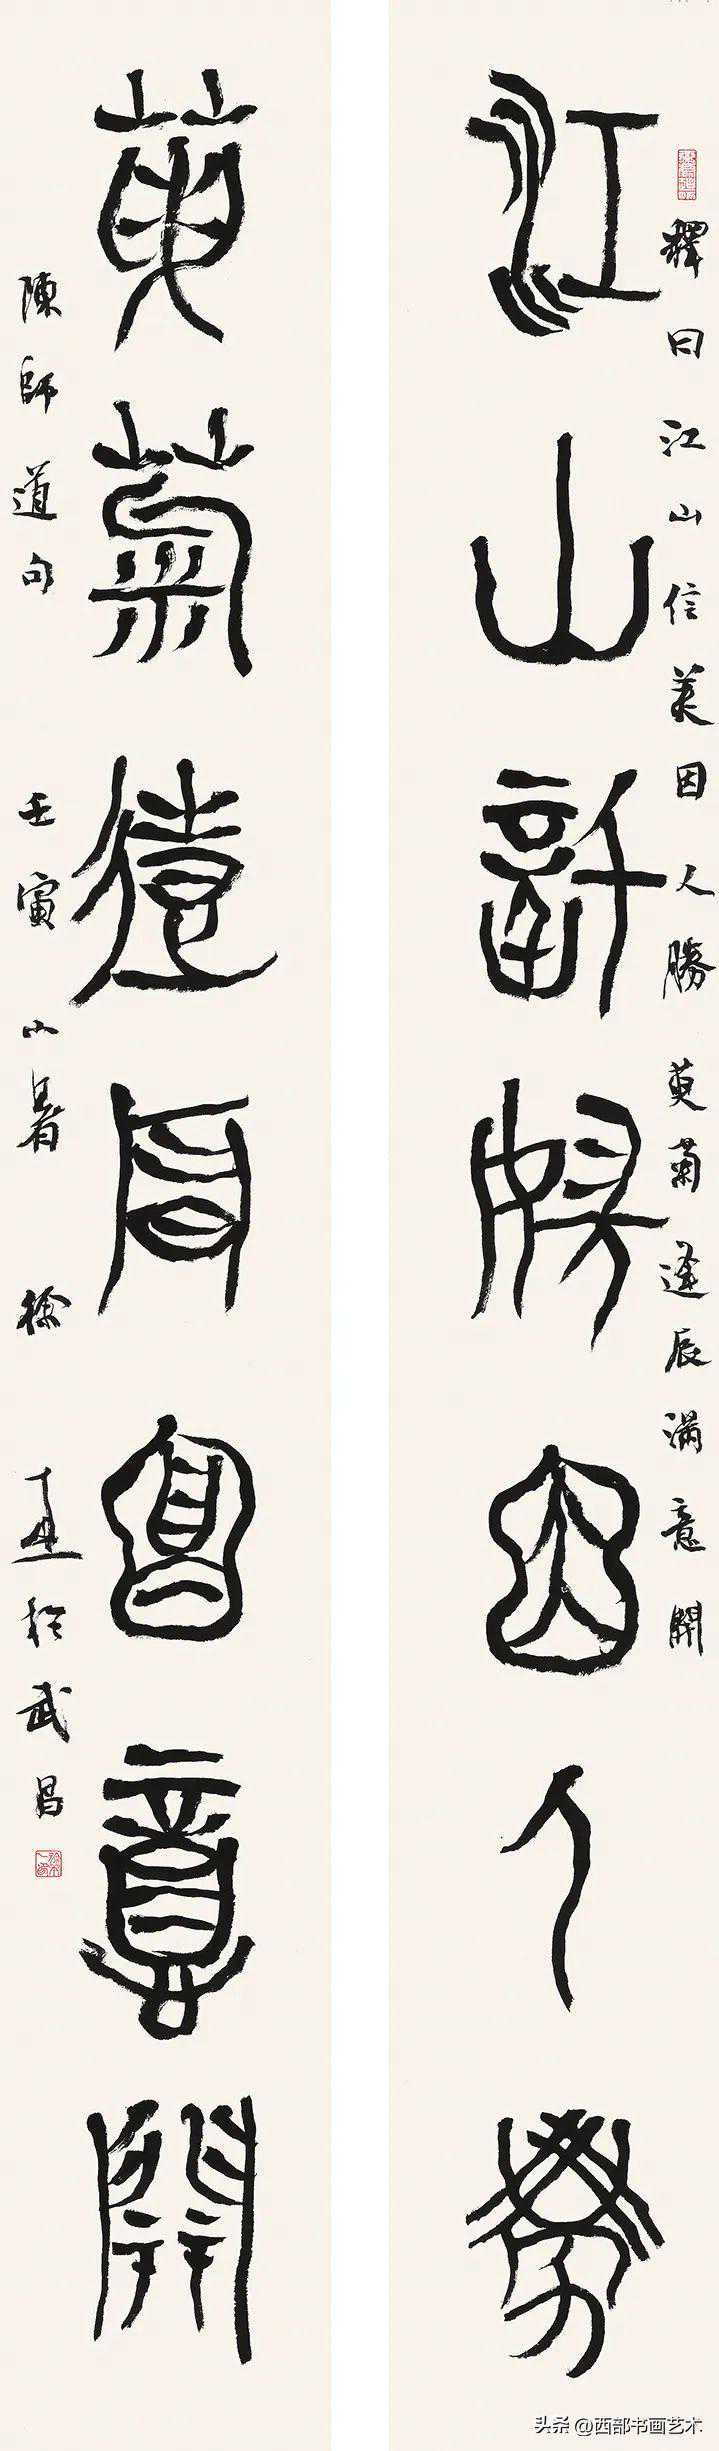 釋曰江山信美因人勝萸菊逢辰滿意開
江山信美因人勝
萸菊逢辰滿意開
陳師道句壬寅小暑徐本一於武昌
头条@西部书画艺术